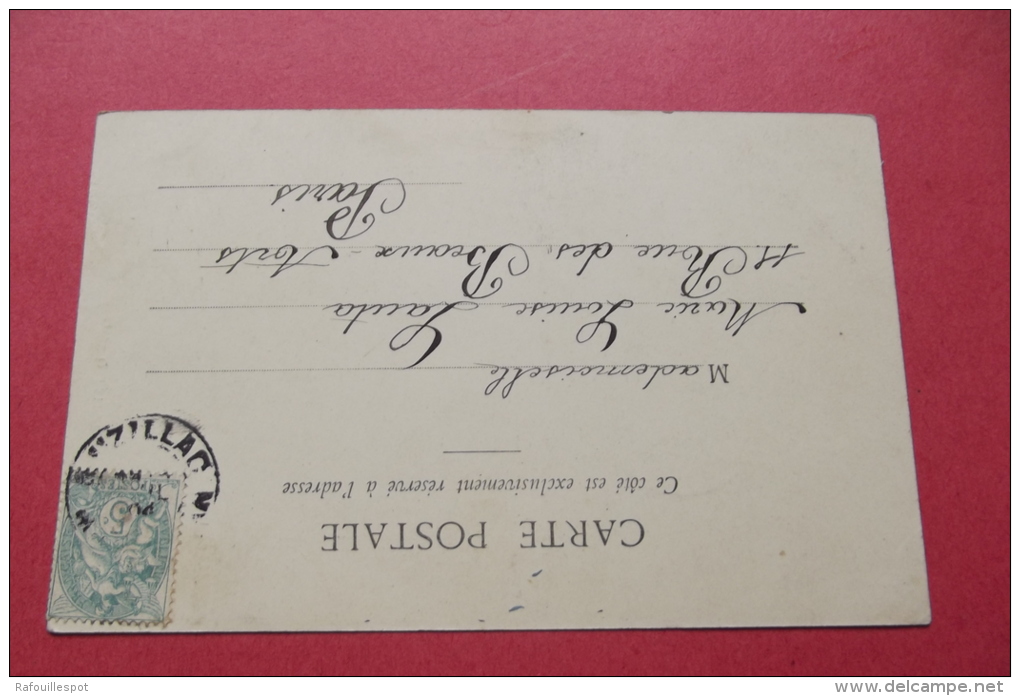 CARTE POSTALE
Ce côté est exclusivement réservé à l'adresse
Mademoiselle
Marie Louise Lauta
11 Rue des Beaux-Arts
Paris
UZILLAC
5
Rafouillespot
delcampe.net